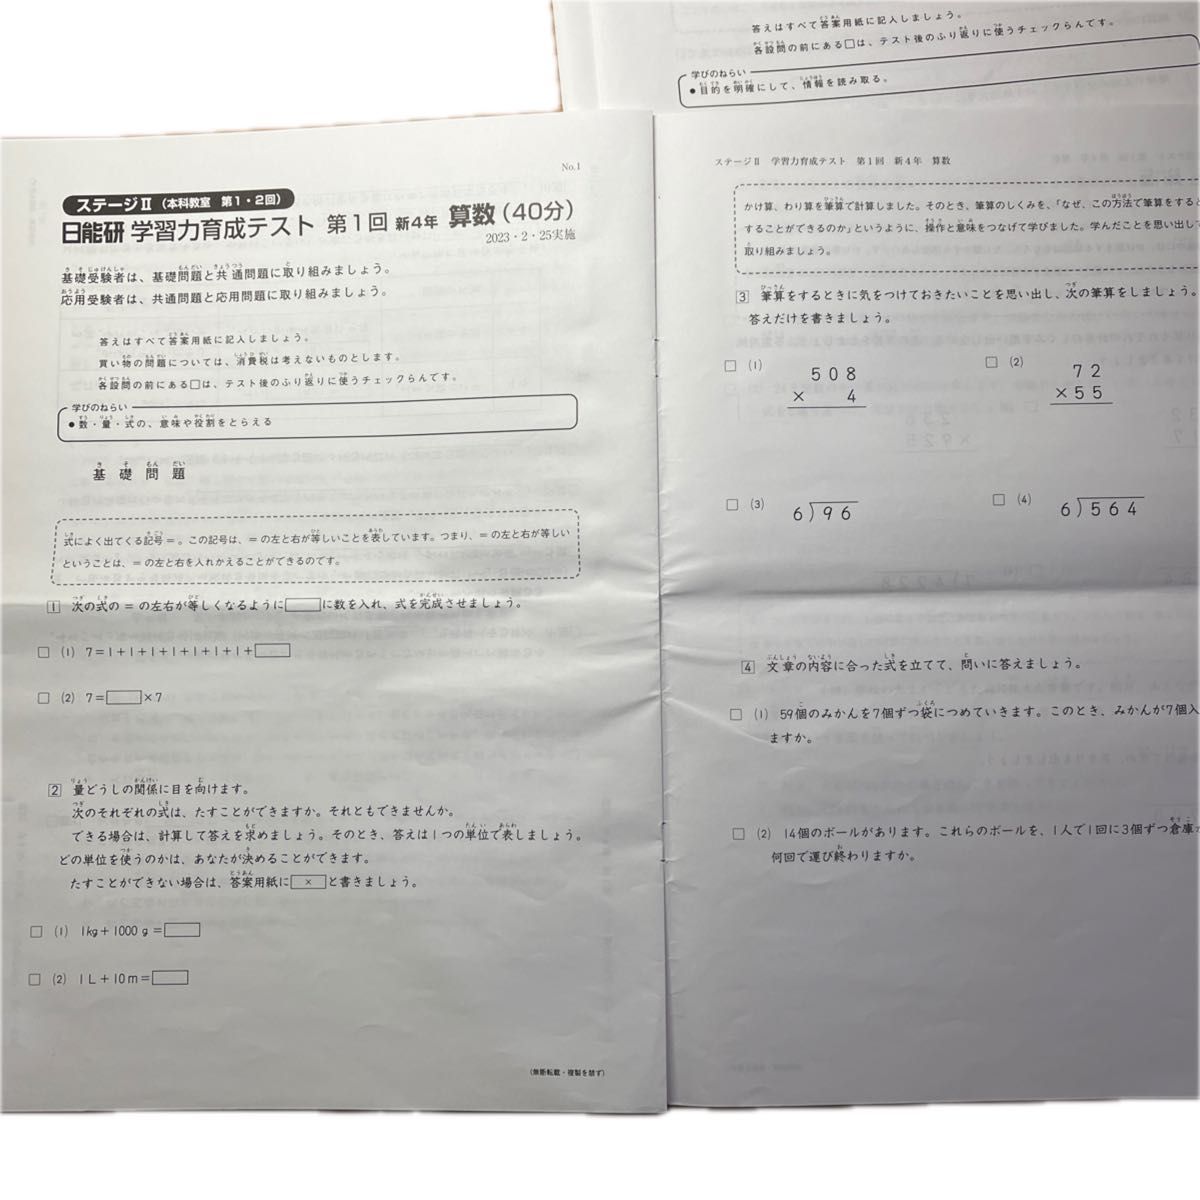 答えはすべて答案用紙に記入しましょう。
各設問の前にある□は、テスト後のふり返りに使うチェックらんです。
学びのねらい
●目的を明確にして、情報を読み取る。
No.1
ステージⅡ（本科教室 第1・2回）
日能研 学習力育成テスト 第1回 新4年 算数（40分）
2023・2・25実施
基礎受験者は、基礎問題と共通問題に取り組みましょう。
応用受験者は、共通問題と応用問題に取り組みましょう。
答えはすべて答案用紙に記入しましょう。
買い物の問題については、消費税は考えないものとします。
各設問の前にある□は、テスト後のふり返りに使うチェックらんです。
学びのねらい
●数・量・式の、意味や役割をとらえる
基礎問題
式によく出てくる記号＝。この記号は、＝の左と右が等しいことを表しています。つまり、＝の左と右が等しい
ということは、＝の左と右を入れかえることができるのです。
1 次の式の＝の左右が等しくなるように□に数を入れ、式を完成させましょう。
□ (1) 7＝1＋1＋1＋1＋1＋1＋1＋□
□ (2) 7＝□×7
2 量どうしの関係に目を向けます。
次のそれぞれの式は、たすことができますか。それともできませんか。
できる場合は、計算して答えを求めましょう。そのとき、答えは1つの単位で表しましょう。
どの単位を使うのかは、あなたが決めることができます。
たすことができない場合は、答案用紙に×と書きましょう。
□ (1) 1kg＋1000g＝□
□ (2) 1L＋10m＝□
（無断転載・複製を禁ず）
ステージⅡ 学習力育成テスト 第1回 新4年 算数
かけ算、わり算を筆算で計算しました。そのとき、筆算のしくみを、「なぜ、この方法で筆算をすると
することができるのか」というように、操作と意味をつなげて学びました。学んだことを思い出して
取り組みましょう。
3 筆算をするときに気をつけておきたいことを思い出し、次の筆算をしましょう。
答えだけを書きましょう。
□ (1) 508
× 4
□ (2) 72
×55
□ (3) 6)96
□ (4) 6)564
4 文章の内容に合った式を立てて、問いに答えましょう。
□ (1) 59個のみかんを7個ずつ袋につめていきます。このとき、みかんが7個入
ますか。
□ (2) 14個のボールがあります。これらのボールを、1人で1回に3個ずつ倉庫
何回で運び終わりますか。